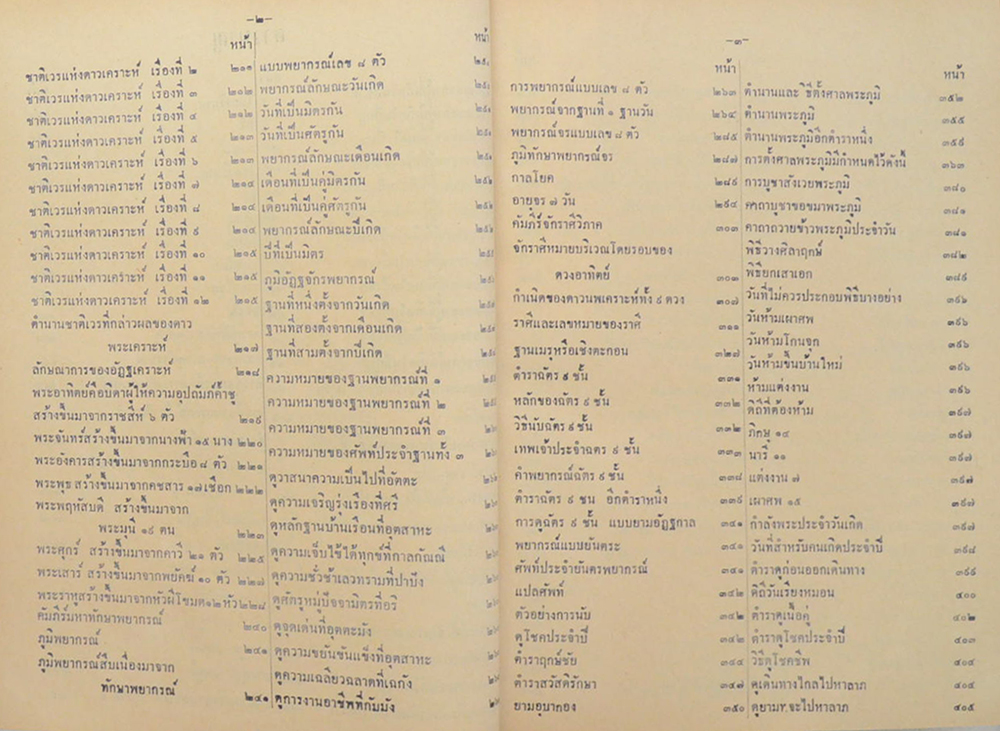 -๒-
หน้า
ชาติเวรแห่งดาวเคราะห์ เรื่องที่ ๒ ๒๑๑
ชาติเวรแห่งดาวเคราะห์ เรื่องที่ ๓ ๒๑๒
ชาติเวรแห่งดาวเคราะห์ เรื่องที่ ๔ ๒๑๒
ชาติเวรแห่งดาวเคราะห์ เรื่องที่ ๕ ๒๑๓
ชาติเวรแห่งดาวเคราะห์ เรื่องที่ ๖ ๒๑๓
ชาติเวรแห่งดาวเคราะห์ เรื่องที่ ๗ ๒๑๔
ชาติเวรแห่งดาวเคราะห์ เรื่องที่ ๘ ๒๑๔
ชาติเวรแห่งดาวเคราะห์ เรื่องที่ ๙ ๒๑๔
ชาติเวรแห่งดาวเคราะห์ เรื่องที่ ๑๐ ๒๑๕
ชาติเวรแห่งดาวเคราะห์ เรื่องที่ ๑๑ ๒๑๕
ชาติเวรแห่งดาวเคราะห์ เรื่องที่ ๑๒ ๒๑๕
ตำนานชาติเวรที่กล่าวผลของดาว
พระเคราะห์ ๒๑๗
ลักษณาการของอัฏฐเคราะห์ ๒๑๘
พระอาทิตย์คือบิดาผู้ให้ความอุปถัมภ์ค้ำชู
สร้างขึ้นมาจากราชสีห์ ๖ ตัว ๒๑๙
พระจันทร์สร้างขึ้นมาจากนางฟ้า ๑๕ นาง ๒๒๐
พระอังคารสร้างขึ้นมาจากกระบือ ๘ ตัว ๒๒๑
พระพุธ สร้างขึ้นมาจากคชสาร ๑๗ เชือก ๒๒๒
พระพฤหัสบดี สร้างขึ้นมาจาก
พระมุนี ๑๙ ตน ๒๒๓
พระศุกร์ สร้างขึ้นมาจากคาวี ๒๑ ตัว ๒๒๕
พระเสาร์ สร้างขึ้นมาจากพยัคฆ์ ๑๐ ตัว ๒๒๗
พระราหูสร้างขึ้นมาจากหัวผีโขมด ๑๒ หัว ๒๒๘
คัมภีร์มหาทักษาพยากรณ์ ๒๔๐
ภูมิพยากรณ์ ๒๔๑
ภูมิพยากรณ์สืบเนื่องมาจาก
ทักษาพยากรณ์ ๒๔๑
หน้า
แบบพยากรณ์เลข ๘ ตัว
พยากรณ์ลักษณะวันเกิด
วันที่เป็นมิตรกัน
วันที่เป็นศัตรูกัน
พยากรณ์ลักษณะเดือนเกิด
เดือนที่เป็นคู่มิตรกัน
เดือนที่เป็นคู่ศัตรูกัน
พยากรณ์ลักษณะปีเกิด
ปีที่เป็นมิตร
ภูมิอัฏฐจักรพยากรณ์
ฐานที่หนึ่งตั้งจากวันเกิด
ฐานที่สองตั้งจากเดือนเกิด
ฐานที่สามตั้งจากปีเกิด
ความหมายของฐานพยากรณ์ที่ ๑
ความหมายของฐานพยากรณ์ที่ ๒
ความหมายของฐานพยากรณ์ที่ ๓
ความหมายของศัพท์ประจำฐานทั้ง ๓
ดูวาสนาความเป็นไปที่อัตตะ
ดูความเจริญรุ่งเรืองที่ศรี
ดูหลักฐานบ้านเรือนที่อุตสาหะ
ดูความเจ็บไข้ได้ทุกข์ที่กาลกัณณี
ดูความชั่วช้าเลวทรามที่ปาปัง
ดูศัตรูหมู่ปัจจามิตรที่อริ
ดูจุดเด่นที่อุตตะมัง
ดูความขยันขันแข็งที่อุตสาหะ
ดูความเฉลียวฉลาดที่เฉกัง
ดูการงานอาชีพที่กัมมัง
-๓-
หน้า
การพยากรณ์แบบเลข ๘ ตัว ๒๖๓
พยากรณ์จากฐานที่ ๑ ฐานวัน ๒๖๔
พยากรณ์จรแบบเลข ๘ ตัว ๒๘๕
ภูมิทักษาพยากรณ์จร ๒๘๗
กาลโยค ๒๘๙
อายุจร ๗ วัน ๒๙๔
คัมภีร์จักราศีวิภาค ๓๐๓
จักราศีหมายบริเวณโดยรอบของ
ดวงอาทิตย์ ๓๐๑
กำเนิดของดาวนพเคราะห์ทั้ง ๙ ดวง ๓๐๗
ราศีและเลขหมายของราศี ๓๑๑
ฐานเมรุหรือเชิงตะกอน ๓๒๗
ตำราฉัตร ๙ ชั้น ๓๓๑
หลักของฉัตร ๙ ชั้น ๓๓๒
วิธีนับฉัตร ๙ ชั้น ๓๓๒
เทพเจ้าประจำฉัตร ๙ ชั้น ๓๓๓
คำพยากรณ์ฉัตร ๙ ชั้น ๓๓๘
ตำราฉัตร ๙ ชน อีกตำราหนึ่ง ๓๓๙
การดูฉัตร ๙ ชั้น แบบยามอัฏฐกาล ๓๔๑
พยากรณ์แบบยันตระ ๓๔๑
ศัพท์ประจำยันตรพยากรณ์ ๓๔๑
แปลศัพท์
ตัวอย่างการนับ ๓๔๒
ดูโชคประจำปี ๓๔๒
ตำราฤกษ์ชัย ๓๔๔
ตำราสวัสดิรักษา ๓๔๗
ยามอุบากอง ๓๕๐
หน้า
ตำนานและ วิธีตั้งศาลพระภูมิ ๓๕๒
ตำนานพระภูมิ ๓๕๕
ตำนานพระภูมิอีกตำราหนึ่ง ๓๕๙
การตั้งศาลพระภูมิมีกำหนดไว้ดังนี้ ๓๖๓
การบูชาสังเวยพระภูมิ ๓๘๐
คาถาบูชาขอขมาพระภูมิ ๓๘๑
คาถาถวายข้าวพระภูมิประจำวัน ๓๘๑
พิธีวางศิลาฤกษ์ ๓๘๒
พิธียกเสาเอก ๓๘๙
วันที่ไม่ควรประกอบพิธีบางอย่าง ๓๙๖
วันห้ามเผาศพ ๓๙๖
วันห้ามโกนจุก ๓๙๖
วันห้ามขึ้นบ้านใหม่ ๓๙๖
ห้ามแต่งงาน ๓๙๖
ดิถีที่ต้องห้าม ๓๙๗
ภิกษุ ๑๔ ๓๙๗
นารี ๑๑ ๓๙๗
แต่งงาน ๗ ๓๙๗
เผาศพ ๑๕ ๓๙๗
กำลังพระประจำวันเกิด ๓๙๗
วันที่สำหรับคนเกิดประจำปี ๓๙๘
ตำราดูก่อนออกเดินทาง ๓๙๙
ดิถีวันเรียงหมอน ๔๐๐
ตำราดูเนื้อคู่ ๔๐๒
ตำราดูโชคประจำปี ๔๐๓
วิธีดูโชคชีพ ๔๐๔
ดูเดินทางไกลไปหาลาภ ๔๐๕
ดูยามที่จะไปหาลาภ ๔๐๕